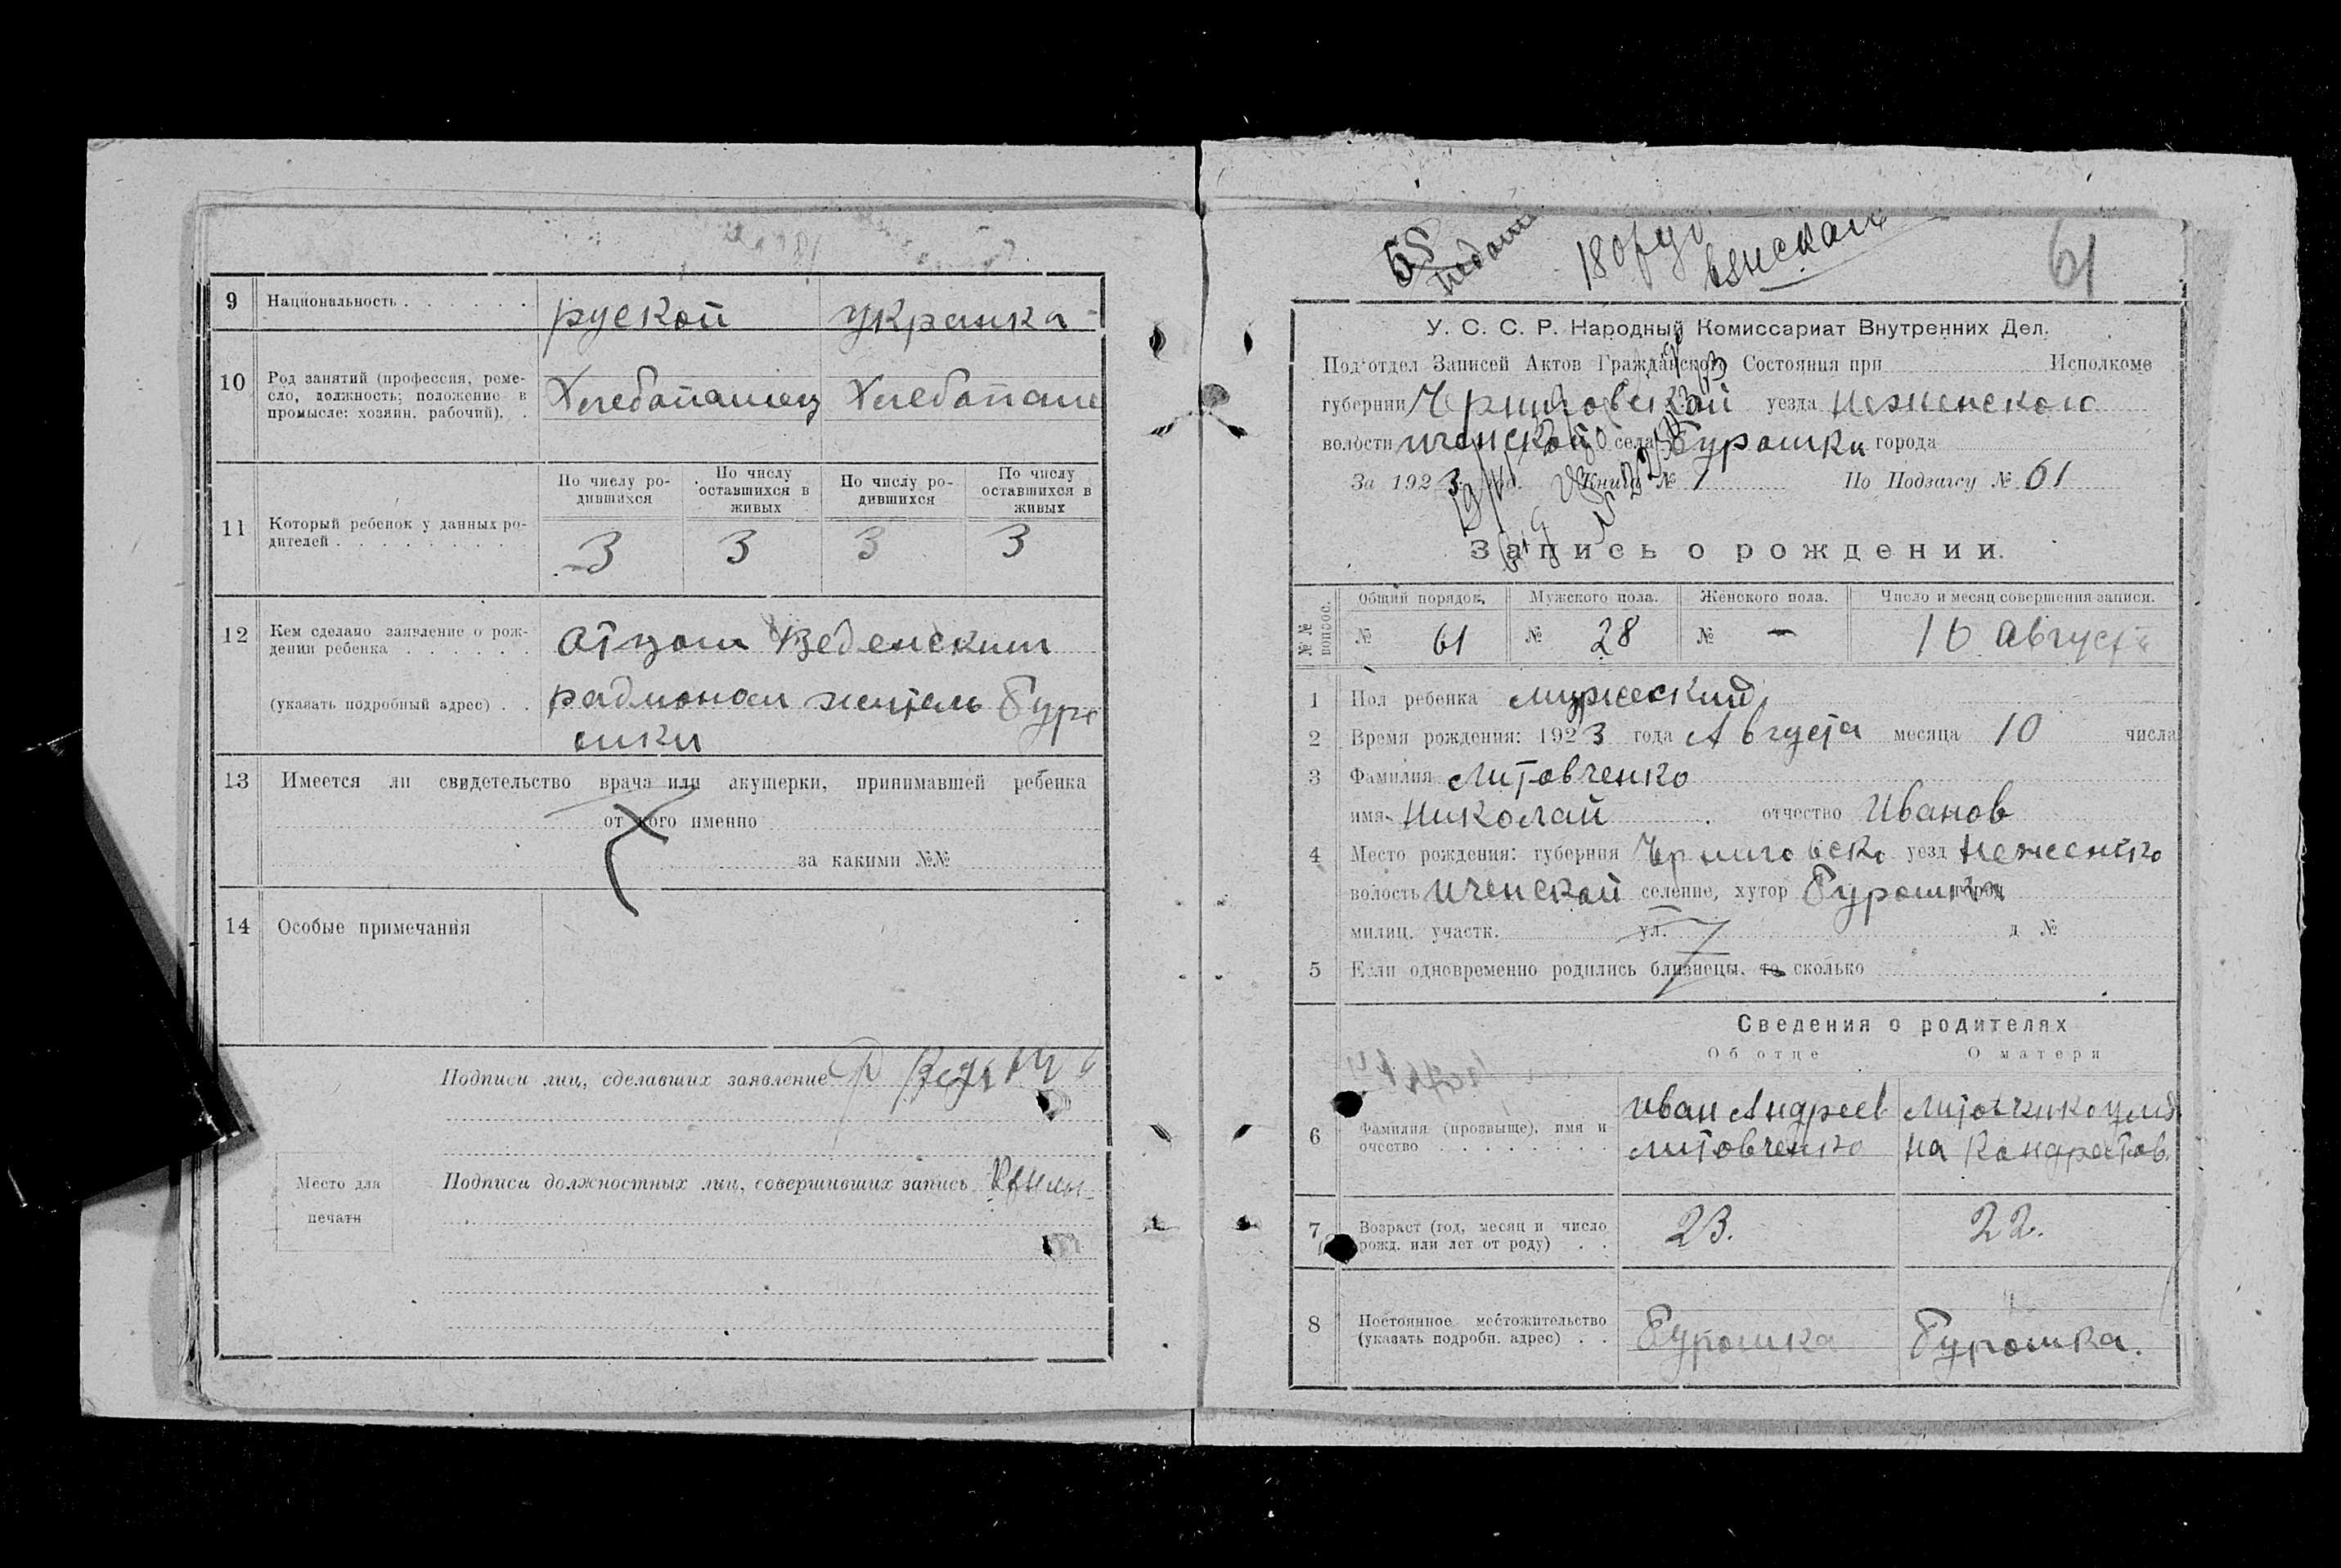 9 Национальность . . . . . . руской украинка
10 Род занятий (профессия, реме-
сло, должность; положение в
промысле: хозяин, рабочий). . Хлебапашец Хлебапаше
По числу ро-
дившихся
По числу
оставшихся в
живых
По числу ро-
дившихся
По числу
оставшихся в
живых
11 Который ребенок у данных ро-
дителей . . . . . . . . . 3 3 3 3
12 Кем сделано заявление о рож-
дении ребенка . . . . . . отцом Веденским
(указать подробный адрес) . . радионом житель Буро
мки
13 Имеется ли свидетельство врача или акушерки, принимавшей ребенка
от кого именно
за какими №№
14 Особые примечания
Подписи лиц, сделавших заявление
Место для
печати
Подписи должностных лиц, совершивших запись
55 180
61
У. С. С. Р. Народный Комиссариат Внутренних Дел.
Под'отдел Записей Актов Гражданского Состояния при Исполкоме
губернии Чрниговской уезда неженского
волости иченской села Буромки города
За 1923 год. Книга № 1 По Подзагсу № 61
Запись о рождении.
№№ вопрос.
Общий порядок. Мужского пола. Женского пола. Число и месяц совершения записи.
№ 61 № 28 № — 16 Августа
1 Пол ребенка мужеский
2 Время рождения: 1923 года Августа месяца 10 числа
3 Фамилия Литовченко
имя Николай отчество Иванов
4 Место рождения: губерния Чрниговско уезд Неженско
волость Иченской селение, хутор Буромка город
милиц. участк. ул. д №
5 Если одновременно родились близнецы, то сколько
Сведения о родителях
Об отце О матери
6 Фамилия (прозвыще), имя и
очество . . . . . . . . .
Иван Андреев
Литовченко
Литовченко улья
на Кондратов.
7 Возраст (год, месяц и число
рожд. или лет от роду) . . 23. 22.
8 Постоянное местожительство
(указать подробн. адрес) . . Буромка Буромка.